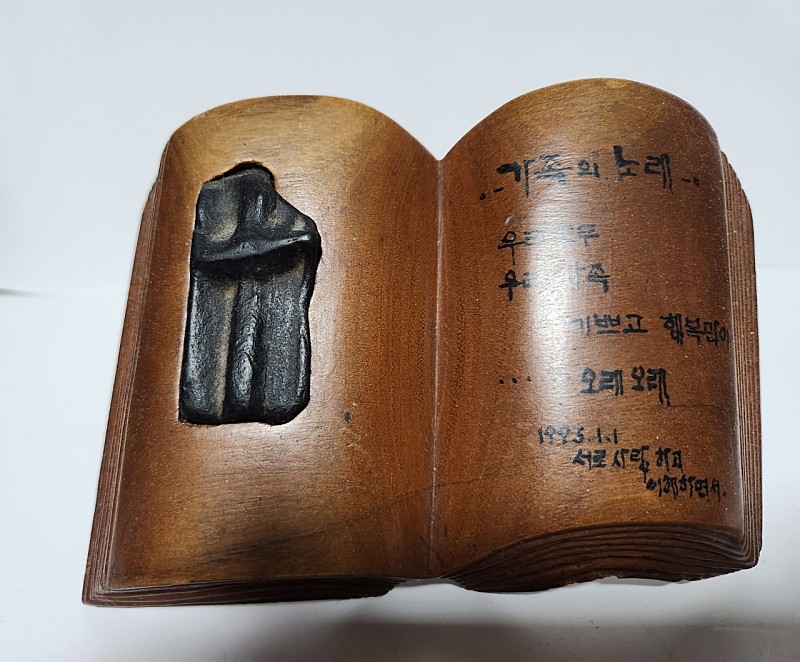 ..가족의 노래..
우리 모두
우리 가족
기쁘고 행복만이
..... 오래오래
1995.1.1
서로 사랑하고
이해하면서.